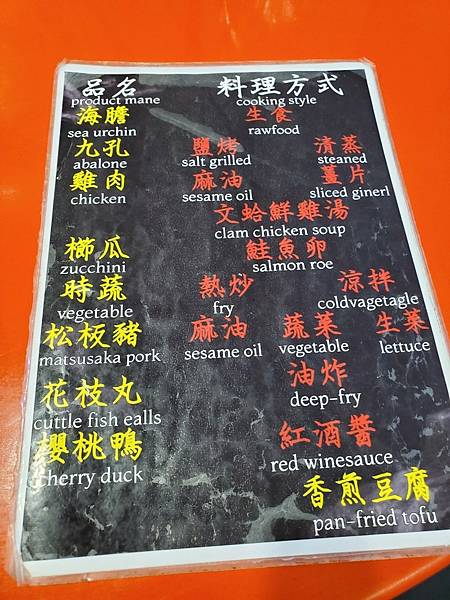 品名 料理方式
product mane cooking style
海膽 生食
sea urchin rawfood
九孔 鹽烤 清蒸
abalone salt grilled steaned
雞肉 麻油 薑片
chicken sesame oil sliced ginerl
文蛤鮮雞湯
clam chicken soup
櫛瓜 鮭魚卵
zucchini salmon roe
時蔬 熱炒 涼拌
vegetable fry coldvagetagle
松板豬 麻油 蔬菜 生菜
matsusaka pork sesame oil vegetable lettuce
花枝丸 油炸
cuttle fish ealls deep-fry
櫻桃鴨 紅酒醬
cherry duck red winesauce
香煎豆腐
pan-fried tofu